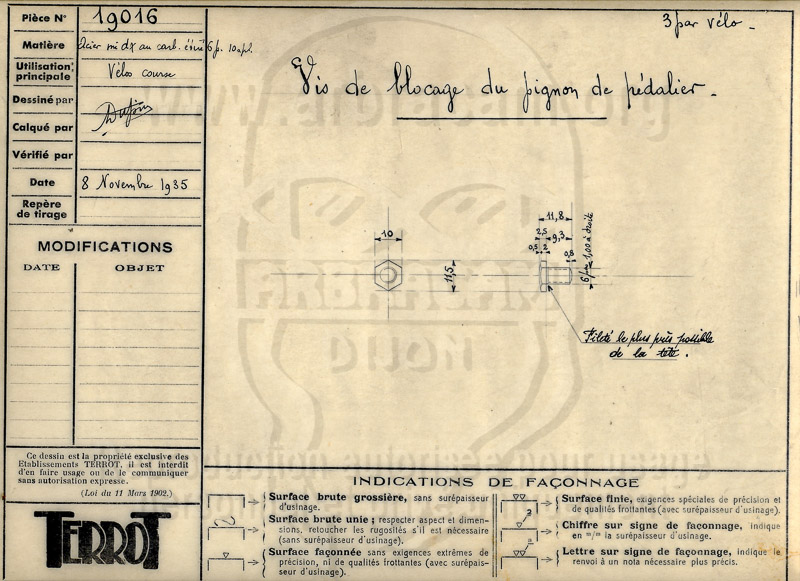 Pièce N° 19016
Matière
Utilisation principale Vélos course
Dessiné par
Calqué par
Vérifié par
Date 8 Novembre 1935
Repère de tirage
MODIFICATIONS
DATE OBJET
Ce dessin est la propriété exclusive des
Etablissements TERROT, il est interdit
d'en faire usage ou de le communiquer
sans autorisation expresse.
(Loi du 11 Mars 1902.)
TERROT
3 par vélo.
Vis de blocage du pignon de pédalier.
10
11,5
11,8
2,5 9,3
0,5 2
0,8
6 pas 1,00 à droite
Fileté le plus près possible
de la tête.
INDICATIONS DE FAÇONNAGE
Surface brute grossière, sans surépaisseur
d'usinage.
Surface brute unie ; respecter aspect et dimen-
sions, retoucher les rugosités s'il est nécessaire
(sans surépaisseur d'usinage).
Surface façonnée sans exigences extrêmes de
précision, ni de qualités frottantes (avec surépais-
seur d'usinage).
Surface finie, exigences spéciales de précision et
de qualités frottantes (avec surépaisseur d'usinage).
2
Chiffre sur signe de faconnage, indique
en m/m la surépaisseur d'usinage.
a
Lettre sur signe de façonnage, indique le
renvoi à un nota nécessaire plus précis.